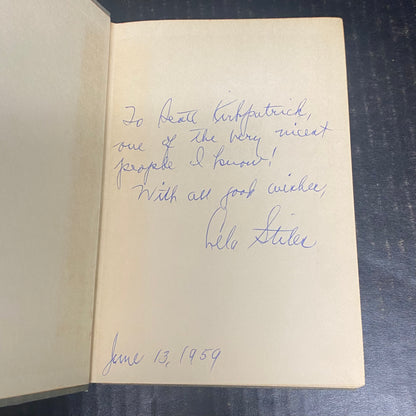 To Kirkpatrick,
one of the very nicest
people I know!
With all good wishes,
Lela Stiles
June 13, 1959